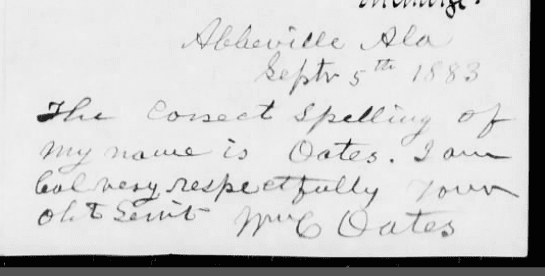 in charge.
Abbeville Ala
Septr 5th 1883
The Correct Spelling of
my name is Oates. I am
Col very respectfully Your
obt Servt Wm C Oates